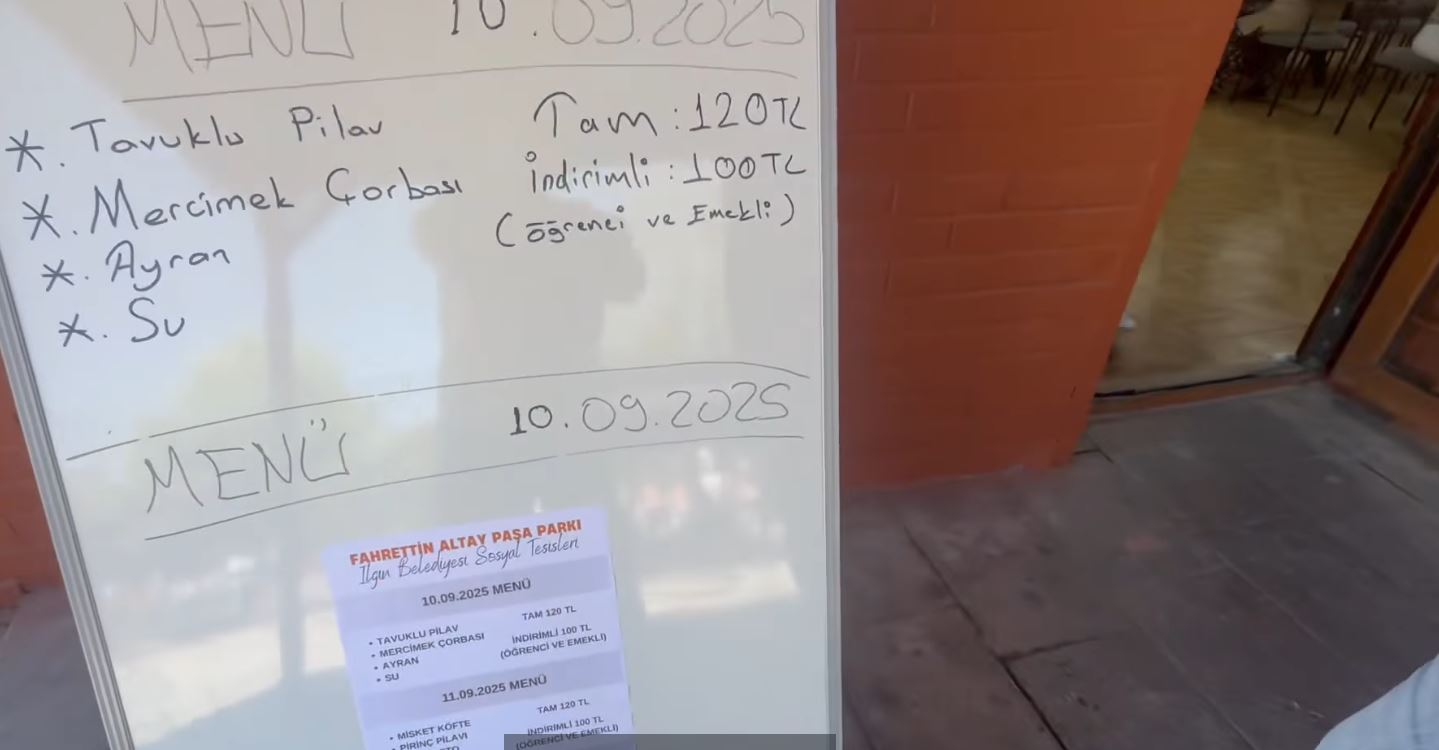 MENÜ 10.09.2025
*. Tavuklu Pilav Tam : 120 TL
*. Mercimek Çorbası İndirimli : 100 TL
(Öğrenci ve Emekli)
*. Ayran
*. Su
MENÜ 10.09.2025
FAHRETTİN ALTAY PAŞA PARKI
Ilgın Belediyesi Sosyal Tesisleri
10.09.2025 MENÜ
• TAVUKLU PİLAV TAM 120 TL
• MERCİMEK ÇORBASI İNDİRİMLİ 100 TL
• AYRAN (ÖĞRENCİ VE EMEKLİ)
• SU
11.09.2025 MENÜ
• MİSKET KÖFTE TAM 120 TL
• PİRİNÇ PİLAVI İNDİRİMLİ 100 TL
(ÖĞRENCİ VE EMEKLİ)